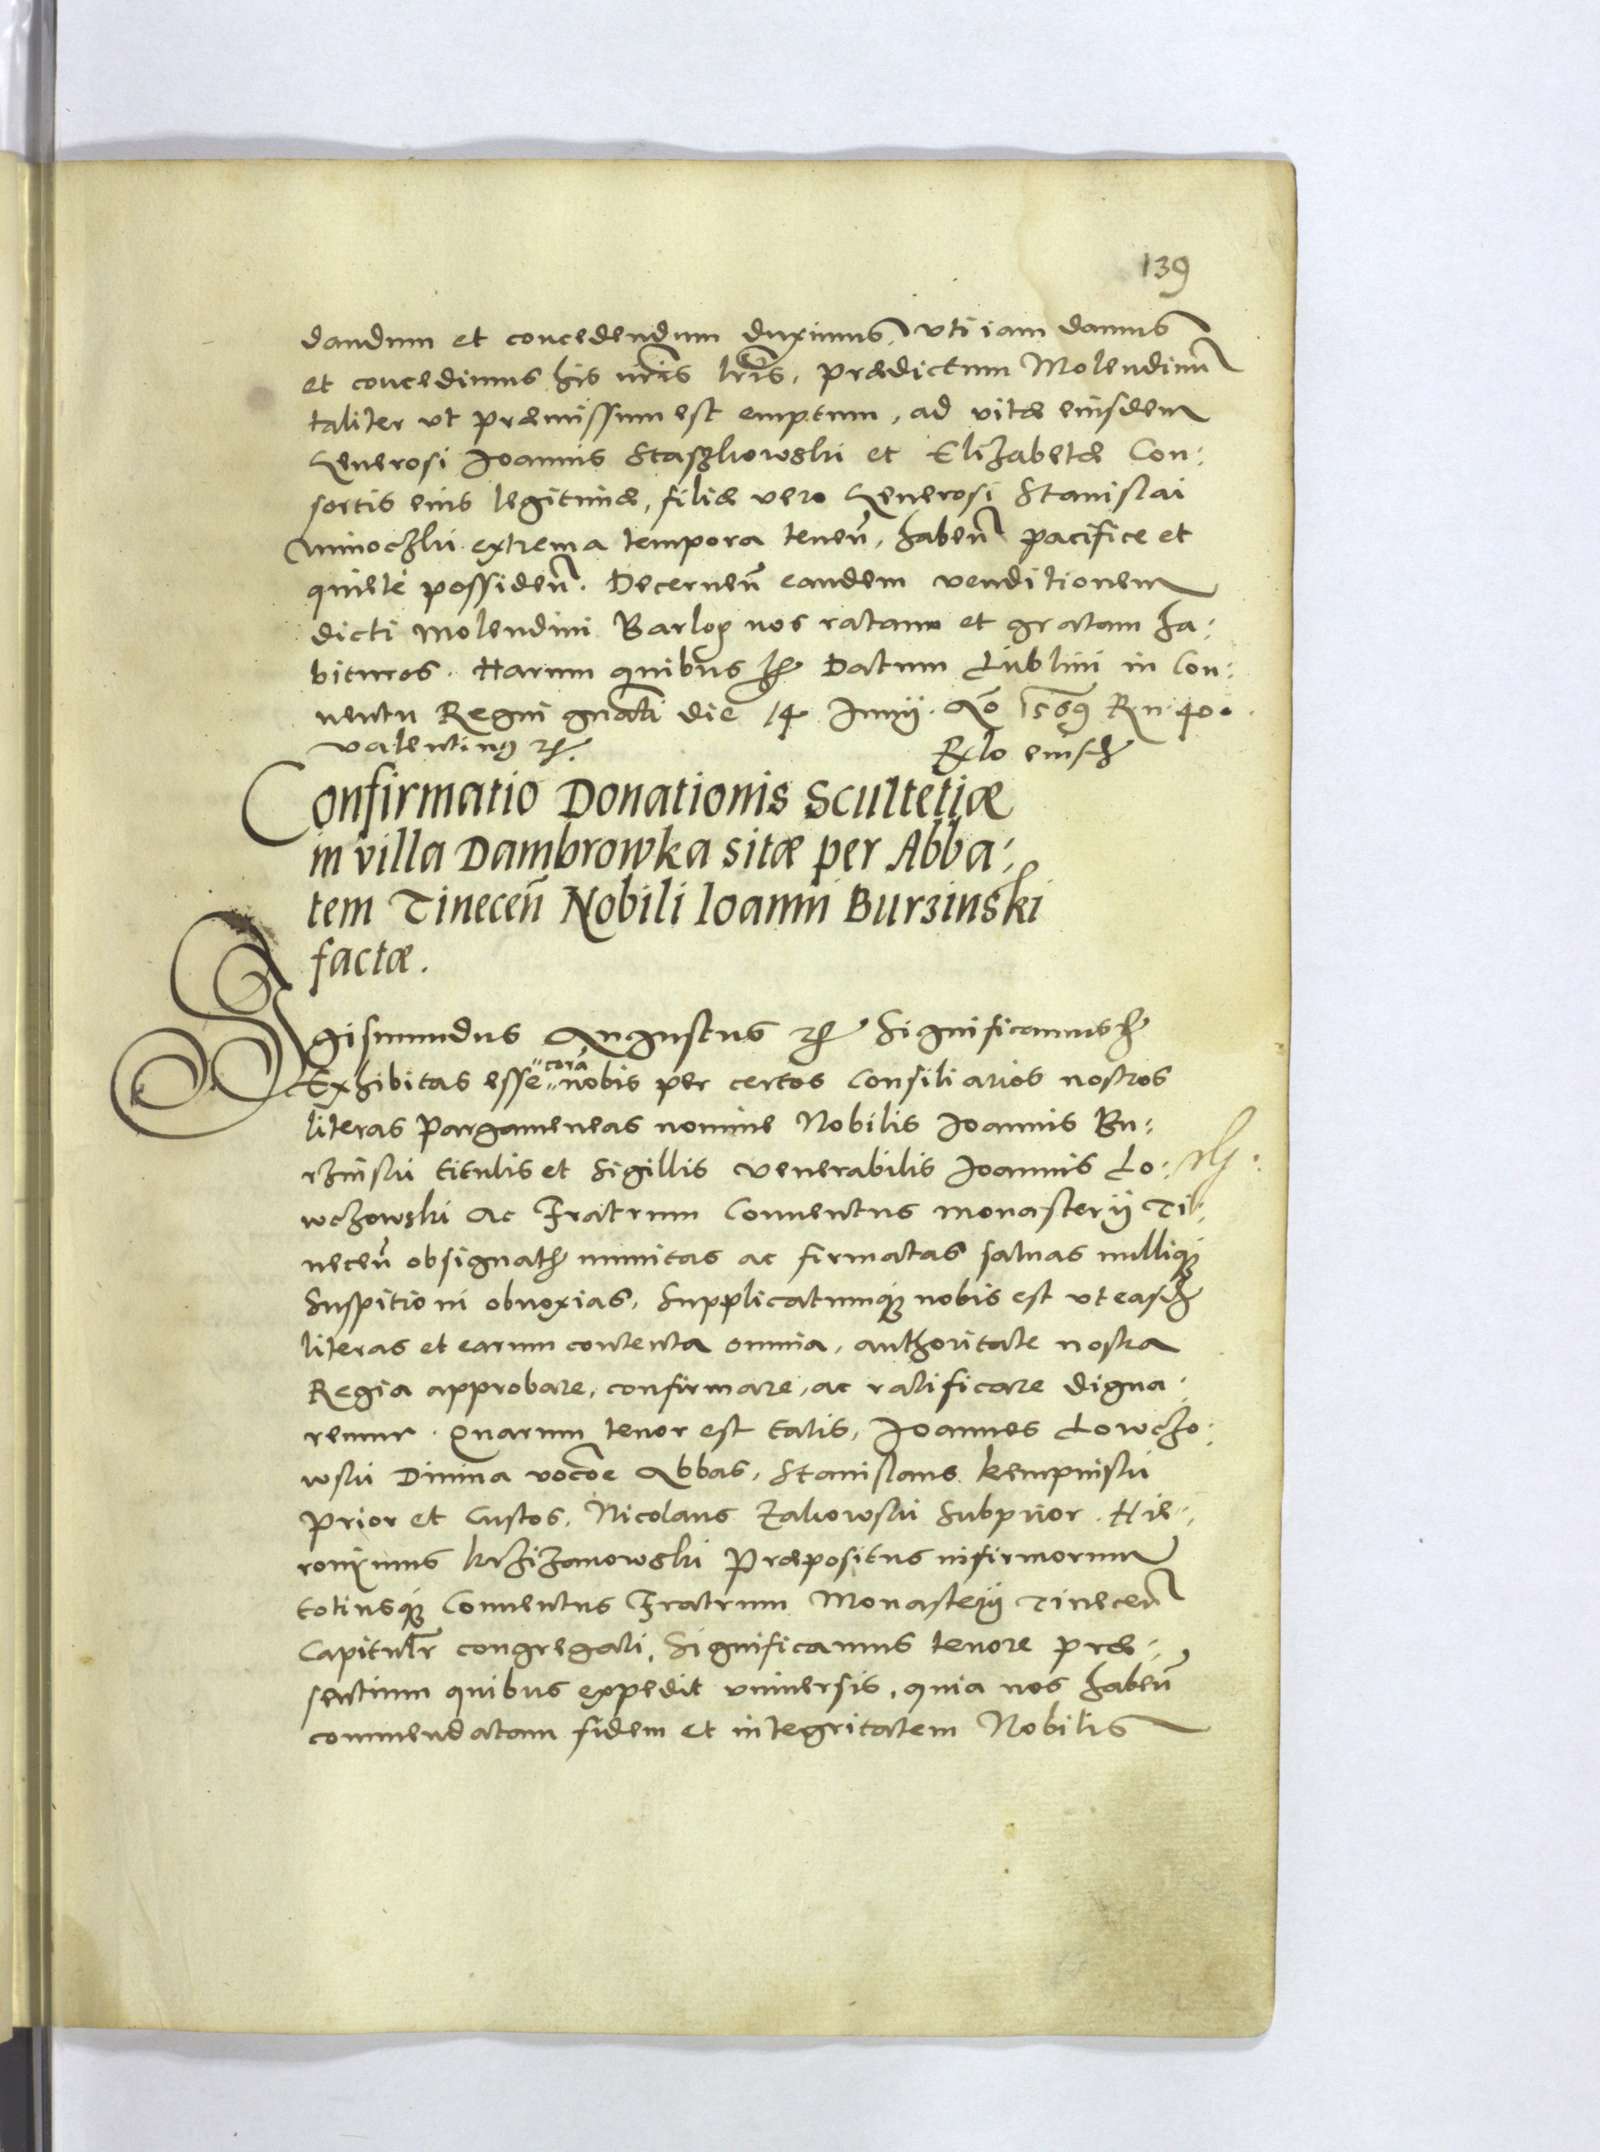 139
dandum et concedendum duximus, vti iam damus
et concedimus his nris lris, prædictum Molendinũ
taliter vt præmissum est emptum, ad vitæ eiusdem
Generosi Joannis Staszkowski et Elizabetæ Con:
sortis eius legitimæ, filiæ vero Generosi Stanislai
Minoczki extrema tempora teneñ, habeñ pacifice et
quiete possideñ. Decerneñ eandem venditionem
dicti Molendini Barlog nos ratam et gratam ha:
bituros. Harum quibus Datum Lublini in Con:
uentu Regni gnali die 14 Junij. Ao 1569 Rn 40.
Valentinus
Rlo eiusd
Confirmatio Donationis Scultetiæ
in villa Dambrowka sitæ per Abba:
tem Tineceñ Nobili Ioanni Burzinski
factæ.
Sigismundus Augustus Significamus
Exhibitas esse corã nobis per certos Consiliarios nostros
literas Pargameneas nomine Nobilis Joannis Bu:
rzinski titulis et Sigillis Venerabilis Joannis Lo:
wczowski Ac Fratrum Conuentus monasterij Ti:
neceñ obsignat munitas ac firmatas saluas nulliq
Suspitioni obnoxias, Supplicatumq nobis est vt easd
literas et earum contenta omnia, authoritate nostra
Regia approbare, confirmare, ac ratificare digna:
remur. Quarum tenor est talis, Joannes Lowczo:
wski Diuina vocõe Abbas, Stanislaus Kempinski
Prior et Custos, Nicolaus Zakowski Subprior. Hie:
ronimus Krzizanowski Præpositus infirmorum
totiusq Conuentus Fratrum Monasterij Tineceñ
Capitulr congregati, Significamus tenore præ:
sentium quibus expedit vniuersis, quia nos habeñ
commendatam fidem et integritatem Nobilis